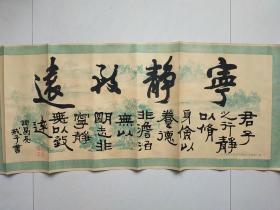 寧靜致遠
君子之行靜
以脩身儉以
養德非澹泊
無以明志非
寧靜無以致
遠
諸葛亮
誡子書